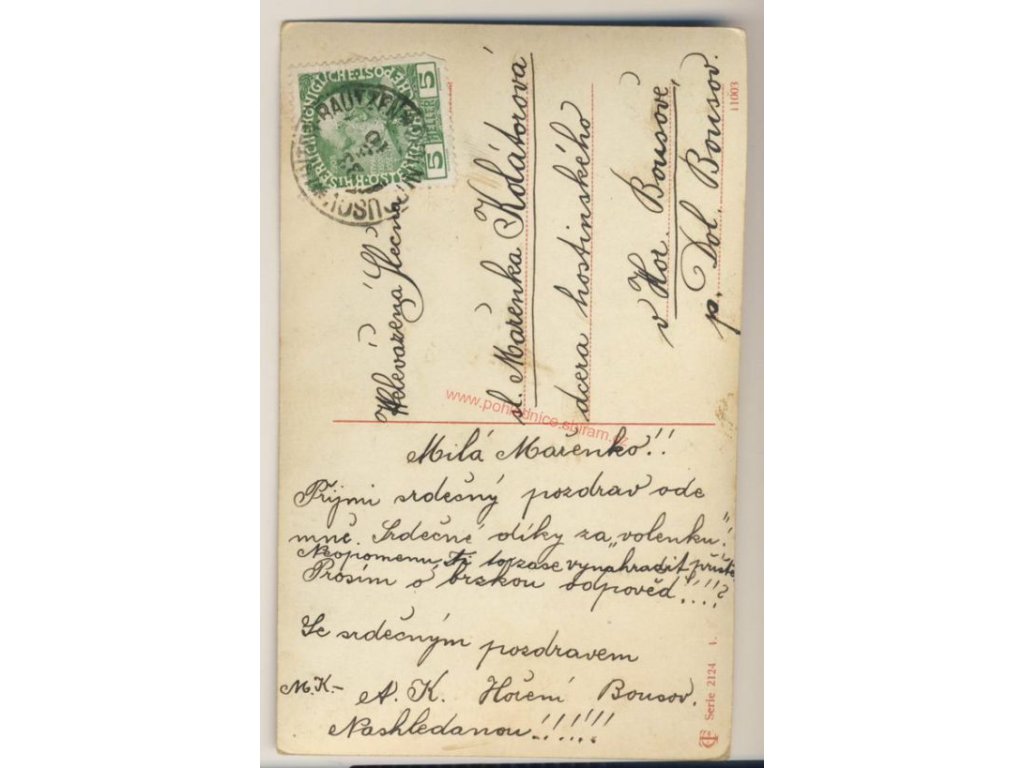 5 5
HELLER
BAUTZEN
Velevážená Slečna
sl. Mařenka Kolátorová
dcera hostinského
v Hor. Bousově,
p. Dol. Bousov.
11003
www.pohlednice.sbiram.cz
Milá Mařenko!!
Prijmi srdečný pozdrav ode
mně. Srdečné díky za „volenku".
Neopomenu Ti to zase vynahradit příště
Prosím o brskou odpověd!!!?
Se srdečným pozdravem
M.K.- A. K. Hoření Bousov.
Nashledanou!!!!!!
Serie 2124